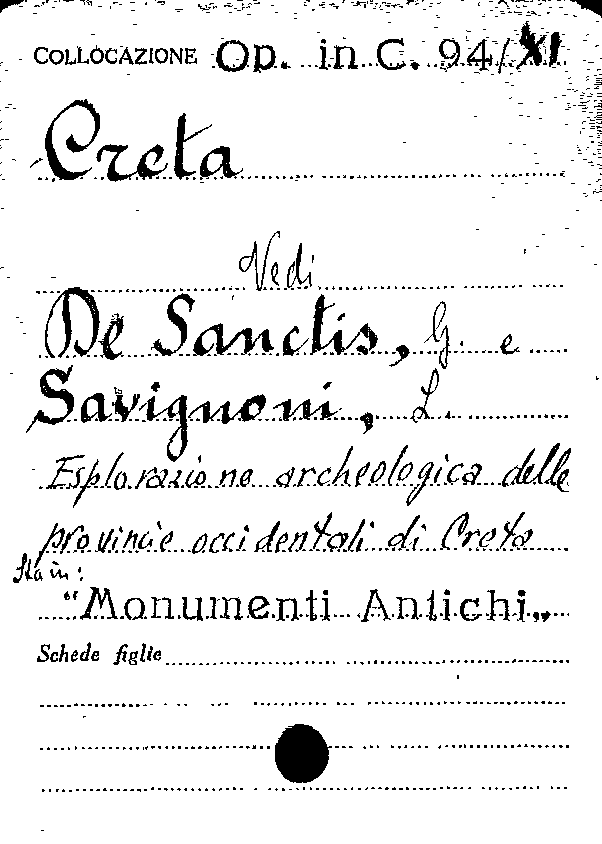 COLLOCAZIONE Op. in C. 94/XI
Creta
Vedi
De Sanctis, G. e
Savignoni, L.
Esplorazione archeologica delle
provincie occidentali di Creta
Sta in:
"Monumenti Antichi„
Schede figlie